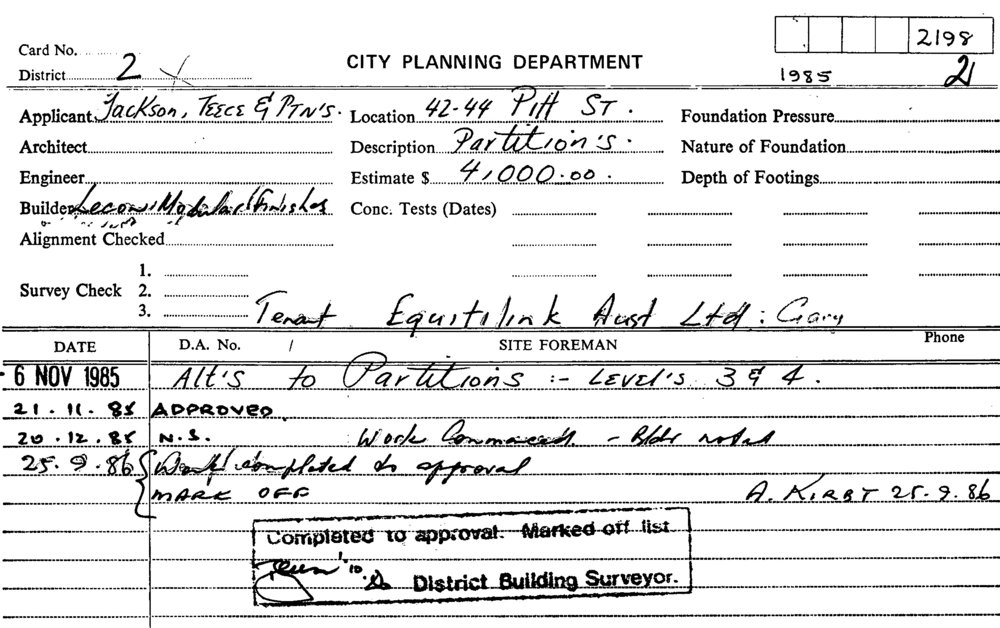 2198
Card No.
District 2
CITY PLANNING DEPARTMENT
1985 2
Applicant Jackson, Teece & Ptn's. Location 42-44 Pitt St. Foundation Pressure
Architect Description Partition's. Nature of Foundation
Engineer Estimate $ 41,000.00. Depth of Footings
Builder Modular Finishes Conc. Tests (Dates)
Alignment Checked
1.
Survey Check 2.
3.
Tenant Equitilink Aust Ltd: Gary
DATE D.A. No. / SITE FOREMAN Phone
- 6 NOV 1985 Alt's to Partitions :- Level's 3 & 4.
21.11.85 APPROVED.
20.12.85 N.S. Work Commenced - Bldr noted
25.9.86 Work completed to approval
MARK OFF A. KIRBY 25.9.86
Completed to approval. Marked off list
District Building Surveyor.